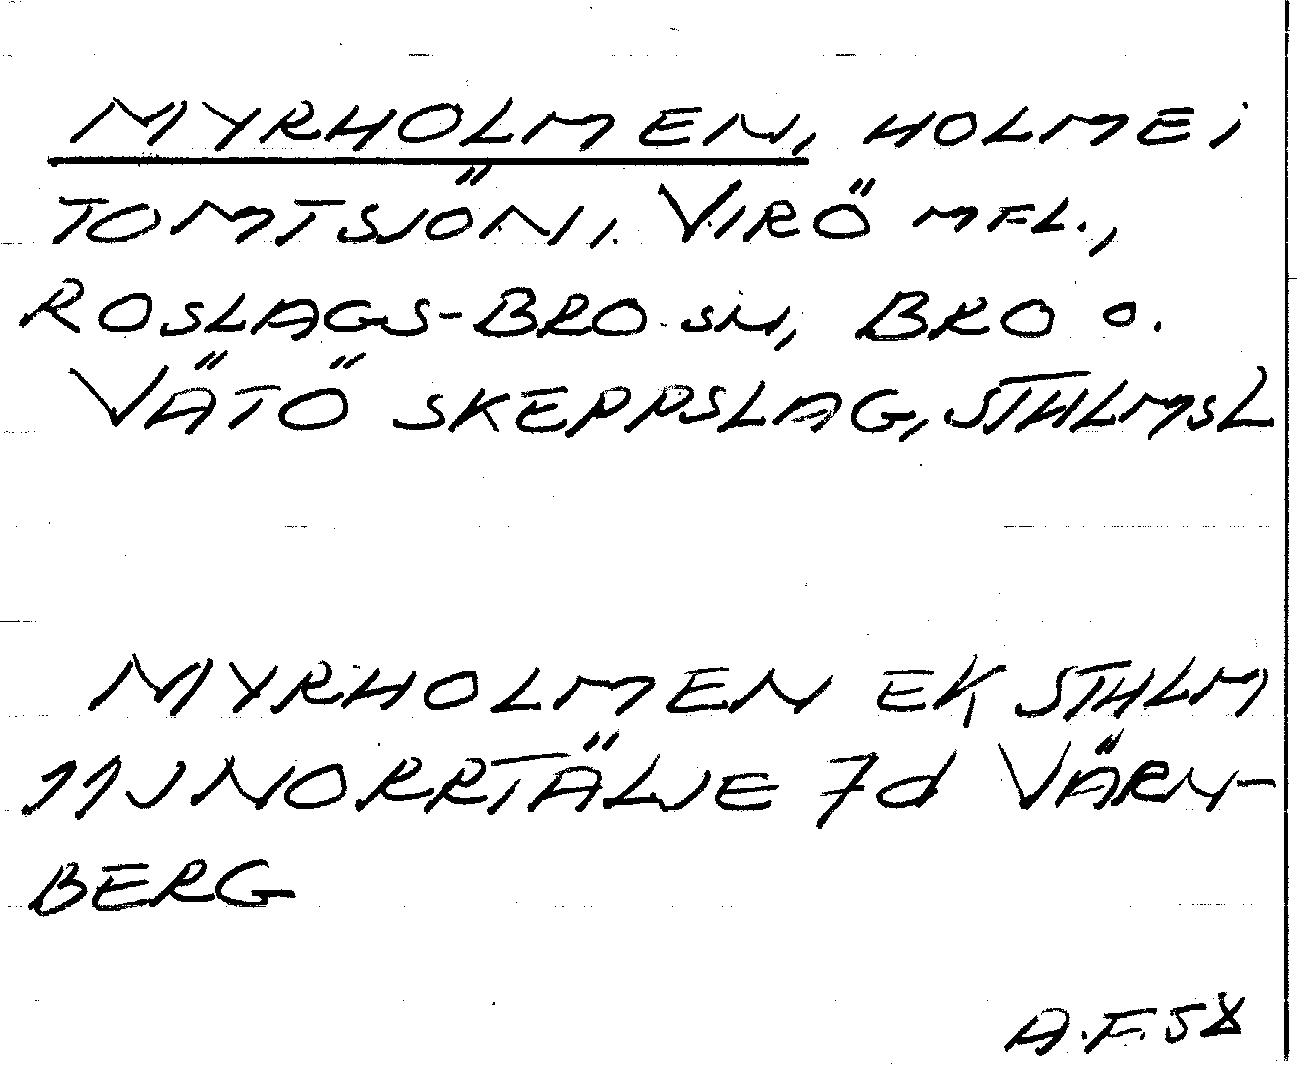 MYRHOLMEN, HOLME i
TOMTSJÖN 1. VIRÖ MFL.,
ROSLAGS-BRO SN, BRO O.
VÄTÖ SKEPPSLAG, STHLMSL
MYRHOLMEN EK STHLM
11J NORRTÄLJE 7d VÄRN-
BERG
A.F.58